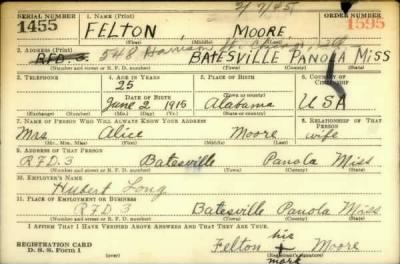 2/7/45
SERIAL NUMBER 1. NAME (Print) ORDER NUMBER
1455 FELTON MOORE 1595
(First) (Middle) (Last)
2. ADDRESS (Print) 548
R.F.D. 3. BATESVILLE PANOLA MISS
(Number and street or R. F. D. number) (Town) (County) (State)
3. TELEPHONE 4. AGE IN YEARS 5. PLACE OF BIRTH 6. COUNTRY OF CITIZENSHIP
25
DATE OF BIRTH Alabama
June 2 1915 USA
(Exchange) (No.) (Mo.) (Day) (Yr.) (State or country)
7. NAME OF PERSON WHO WILL ALWAYS KNOW YOUR ADDRESS 8. RELATIONSHIP OF THAT PERSON
Mrs Alice Moore wife
(Mr., Mrs., Miss) (First) (Middle) (Last)
9. ADDRESS OF THAT PERSON
R.F.D. 3 Batesville Panola Miss
(Number and street or R. F. D. number) (Town) (County) (State)
10. EMPLOYER'S NAME
Hubert Long
11. PLACE OF EMPLOYMENT OR BUSINESS
R F D 3 Batesville Panola Miss
(Number and street or R. F. D. number) (Town) (County) (State)
I AFFIRM THAT I HAVE VERIFIED ABOVE ANSWERS AND THAT THEY ARE TRUE.
REGISTRATION CARD his
D. S. S. Form 1 Felton + Moore
(over) (Registrant's signature)
mark